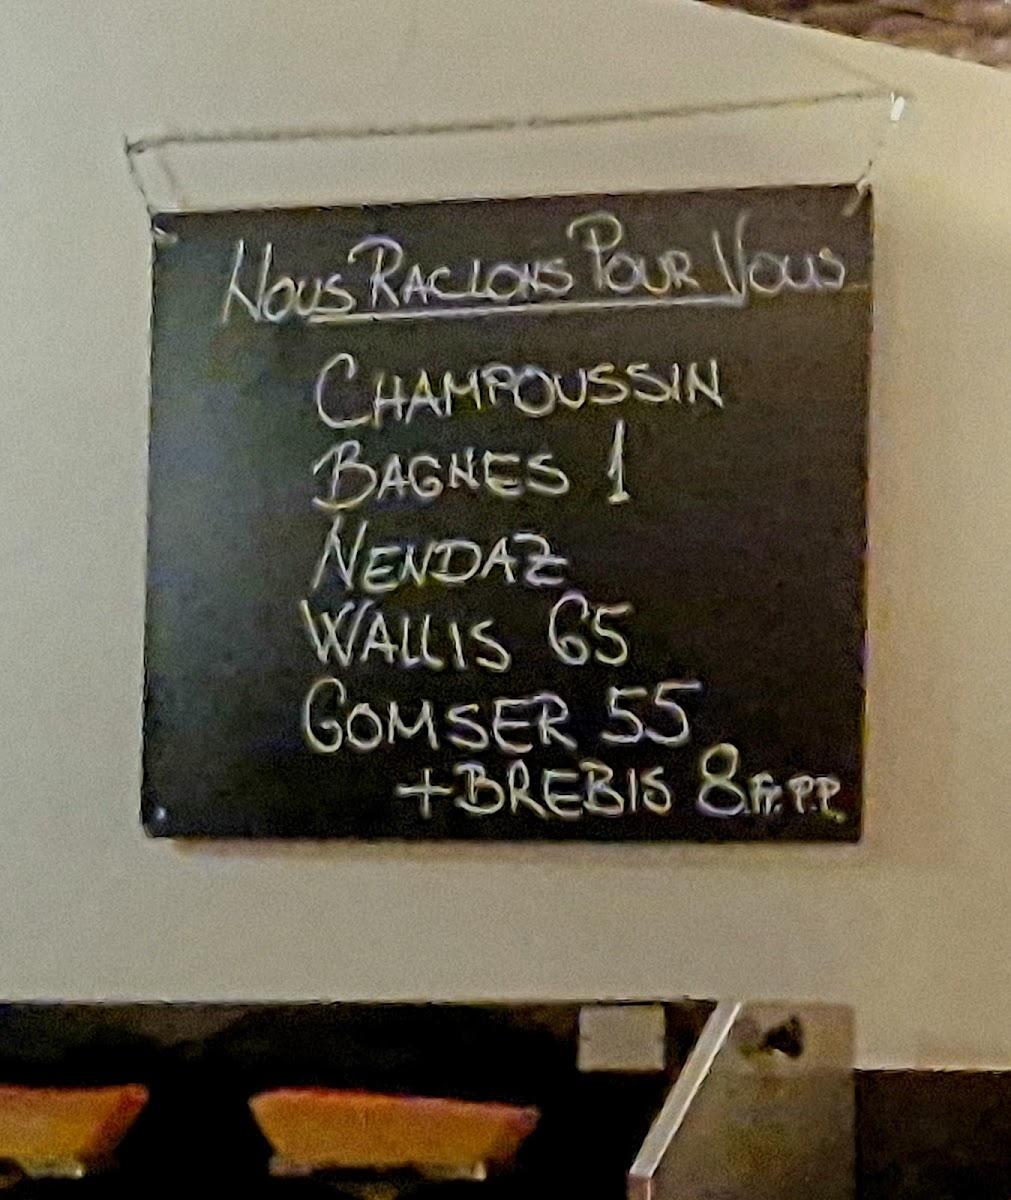 Nous Raclons Pour Vous
CHAMPOUSSIN
BAGNES 1
NENDAZ
WALLIS 65
GOMSER 55
+BREBIS 8 Fr. P.P.